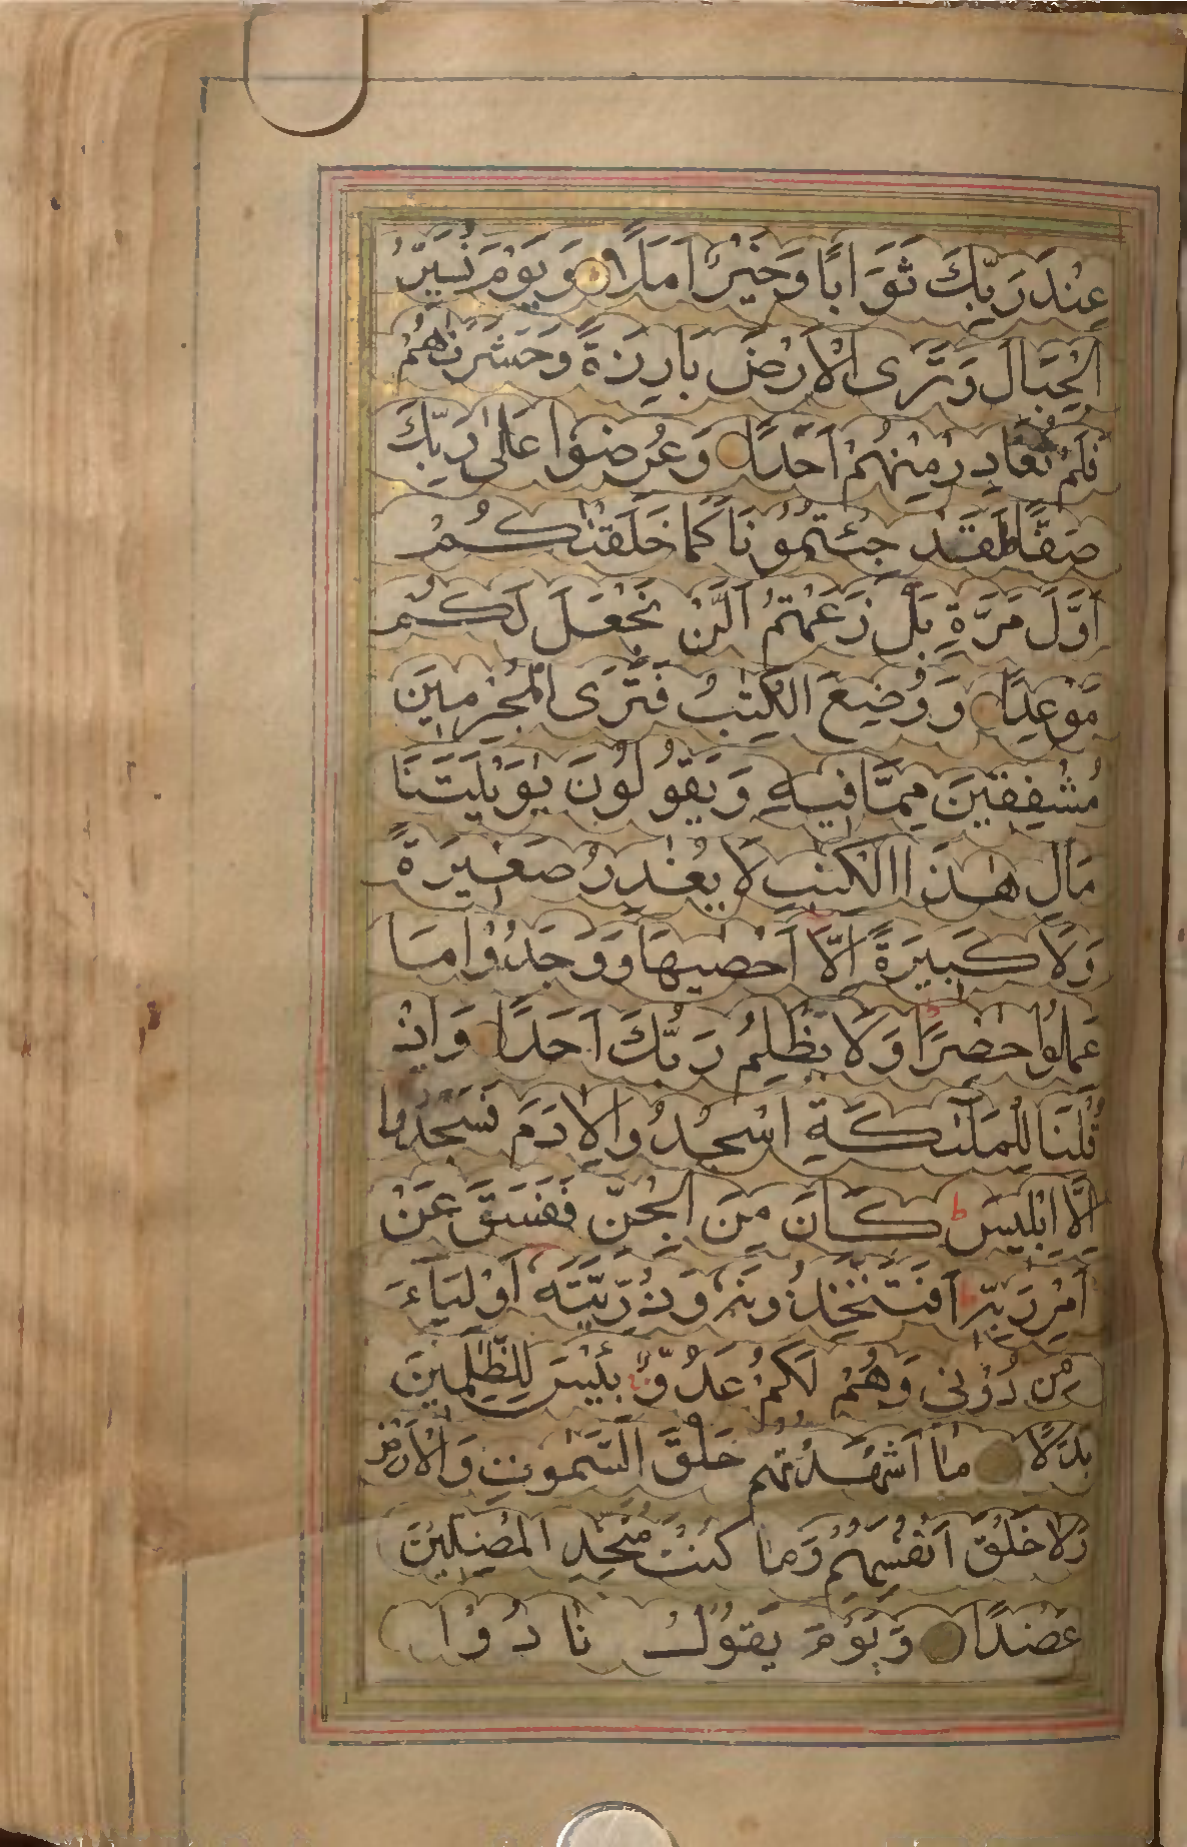 عِنْدَ رَبِّكَ ثَوَابًا وَخَيْرٌ اَمَلًا وَيَوْمَ نُسَيِّرُ
الْجِبَالَ وَتَرَى الْاَرْضَ بَارِزَةً وَحَشَرْنٰهُمْ
فَلَمْ نُغَادِرْ مِنْهُمْ اَحَدًا وَعُرِضُوْا عَلٰى رَبِّكَ
صَفًّا لَقَدْ جِئْتُمُوْنَا كَمَا خَلَقْنٰكُمْ
اَوَّلَ مَرَّةٍ بَلْ زَعَمْتُمْ اَلَّنْ نَجْعَلَ لَكُمْ
مَوْعِدًا وَوُضِعَ الْكِتٰبُ فَتَرَى الْمُجْرِمِيْنَ
مُشْفِقِيْنَ مِمَّا فِيْهِ وَيَقُوْلُوْنَ يٰوَيْلَتَنَا
مَالِ هٰذَا الْكِتٰبِ لَا يُغَادِرُ صَغِيْرَةً
وَلَا كَبِيْرَةً اِلَّا اَحْصٰيهَا وَوَجَدُوْا مَا
عَمِلُوْا حَاضِرًا وَلَا يَظْلِمُ رَبُّكَ اَحَدًا وَاِذْ
قُلْنَا لِلْمَلٰئِكَةِ اسْجُدُوْا لِاٰدَمَ فَسَجَدُوْا
اِلَّا اِبْلِيْسَ ط كَانَ مِنَ الْجِنِّ فَفَسَقَ عَنْ
اَمْرِ رَبِّهٖ ط اَفَتَتَّخِذُوْنَهٗ وَذُرِّيَّتَهٗ اَوْلِيَآءَ
مِنْ دُوْنِيْ وَهُمْ لَكُمْ عَدُوٌّ بِئْسَ لِلظّٰلِمِيْنَ
بَدَلًا مَا اَشْهَدْتُهُمْ خَلْقَ السَّمٰوٰتِ وَالْاَرْضِ
وَلَا خَلْقَ اَنْفُسِهِمْ وَمَا كُنْتُ مُتَّخِذَ الْمُضِلِّيْنَ
عَضُدًا وَيَوْمَ يَقُوْلُ نَادُوْا